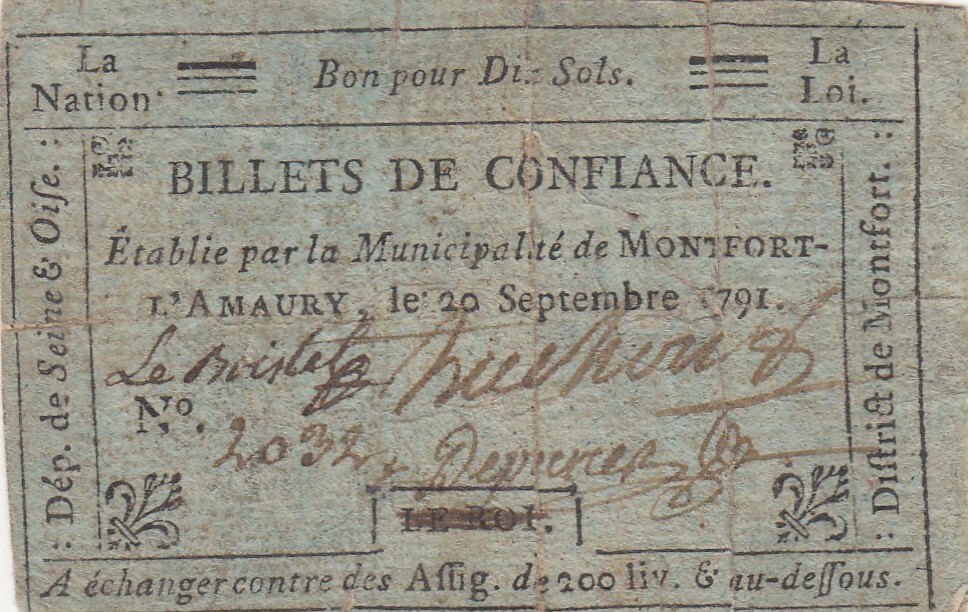 La
Nation
Bon pour Dix Sols.
La
Loi.
: Dép. de Seine & Oiſe. :
BILLETS DE CONFIANCE.
Établie par la Municipalité de MONTFORT-
L'AMAURY, le 20 Septembre 1791.
: Diſtrict de Montfort. :
Nº.
2032
LE ROI.
A échanger contre des Aſſig. de 200 liv. & au-deſſous.